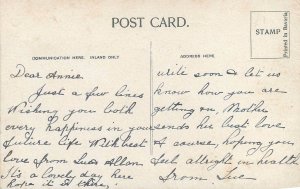 POST CARD.
COMMUNICATION HERE, INLAND ONLY
ADDRESS HERE
STAMP
Printed in Bavaria
Dear Annie.
Just a few lines
Wishing you both
every happiness in your
future life With best
love from Sue & Allan
It's a lovely day here
hope it is there.
write soon & let us
know how you are
getting on, Mother
sends her best love
& course, hoping you
both alright in health
From Sue